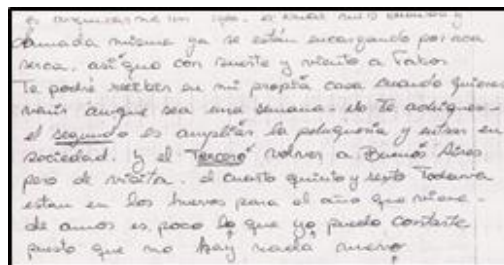 llamada misma ya se están encargando por acá
cerca, así que con suerte y viento a favor
Te podré recibir en mi propia casa cuando quieras
venir aunque sea una semana.
el segundo es ampliar la peluquería y entrar en
sociedad. y el Tercero volver a Buenos Aires
pero de visita. el cuarto quinto y sexto Todavía
estan en los huevos para el año que viene.
de amor es poco lo que yo puedo contarte
puesto que no hay nada nuevo